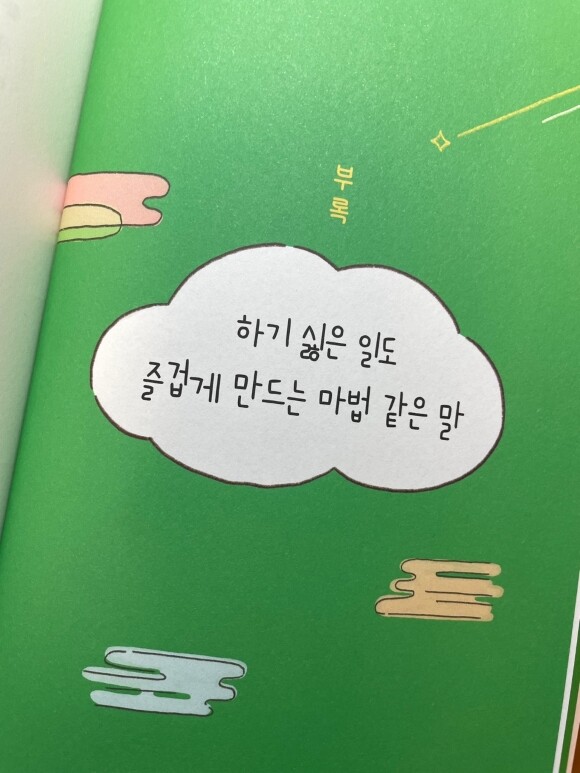 부록
하기 싫은 일도
즐겁게 만드는 마법 같은 말